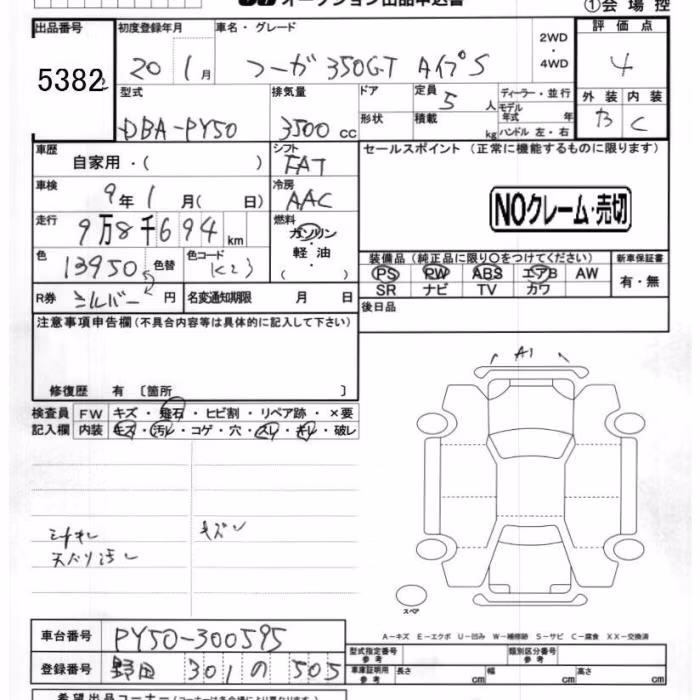 オークション出品申込書
①会場控
出品番号 初度登録年月 車名・グレード 評価点
5382 20 1月 フーガ 350GT Aイプ S 2WD・4WD 4
型式 排気量 ドア 定員 5人 ディーラー・並行 外装 内装
DBA-PY50 3500cc 形状 積載 kg モデル年式 年 B C
ハンドル 左・右
車歴 シフト セールスポイント(正常に機能するものに限ります)
自家用・( ) FAT
車検 9年 1月( 日) 冷房 AAC
NOクレーム・売切
走行 9万8千694km 燃料 ガソリン・軽油・( )
色 13950 色替 色コード K23
装備品(純正品に限り○をつけてください) 新車保証書
PS PW ABS エアB AW 有・無
SR ナビ TV カワ
R券 シルバー 円 名変通知期限 月 日 後日品
注意事項申告欄(不具合内容等は具体的に記入して下さい)
A1
修復歴 有〔箇所 〕
検査員 FW キズ・飛石・ヒビ割・リペア跡・×要
記入欄 内装 キズ・汚レ・コゲ・穴・スレ・キレ・破レ
シートキレ キズシ
天バリ汚レ
スペア
車台番号 PY50-300595
A-キズ E-エクボ U-凹み W-補修跡 S-サビ C-腐食 XX-交換済
登録番号 野田 301 の 505
型式指定番号 参考 類別区分番号 参考
車庫証明用 参考 長さ cm 幅 cm 高さ cm
希望出品コーナー(コーナーは各会場により異なります)